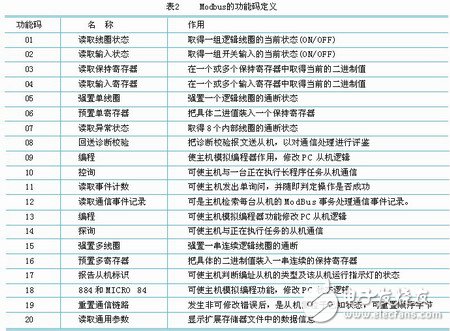 表2 Modbus的功能码定义
功能码 名 称 作用
01 读取线圈状态 取得一组逻辑线圈的当前状态(ON/OFF)
02 读取输入状态 取得一组开关输入的当前状态(ON/OFF)
03 读取保持寄存器 在一个或多个保持寄存器中取得当前的二进制值
04 读取输入寄存器 在一个或多个输入寄存器中取得当前的二进制值
05 强置单线圈 强置一个逻辑线圈的通断状态
06 预置单寄存器 把具体二进值装入一个保持寄存器
07 读取异常状态 取得8个内部线圈的通断状态
08 回送诊断校验 把诊断校验报文送从机，以对通信处理进行评鉴
09 编程 使主机模拟编程器作用，修改PC从机逻辑
10 控询 可使主机与一台正在执行长程序任务从机通信
11 读取事件计数 可使主机发出单询问，并随即判定操作是否成功
12 读取通信事件记录 可是主机检索每台从机的ModBus事务处理通信事件记录。
13 编程 可使主机模拟编程器功能修改PC从机逻辑
14 探询 可使主机与正在执行任务的从机通信
15 强置多线圈 强置一串连续逻辑线圈的通断
16 预置多寄存器 把具体的二进制值装入一串连续的保持寄存器
17 报告从机标识 可使主机判断编址从机的类型及该从机运行指示灯的状态
18 884和MICRO 84 可使主机模拟编程功能，修改PC 逻辑
19 重置通信链路 发生非可修改错误后，是从机 状态，可重置顺序字节
20 读取通用参数 显示扩展存储器文件中的数据信息